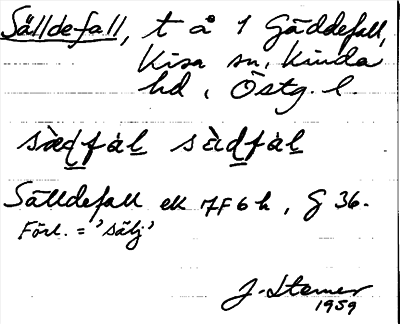 Sälldefall, t å 1 Gäddefall,
Kisa sn, Kinda
hd, Östg. l.
sæ̀d̲fàl̲ sàd̲fàl̲
Sälldefall ek 7F6h, g 36.
Förl. = 'sälj'
J. Stemer
1959